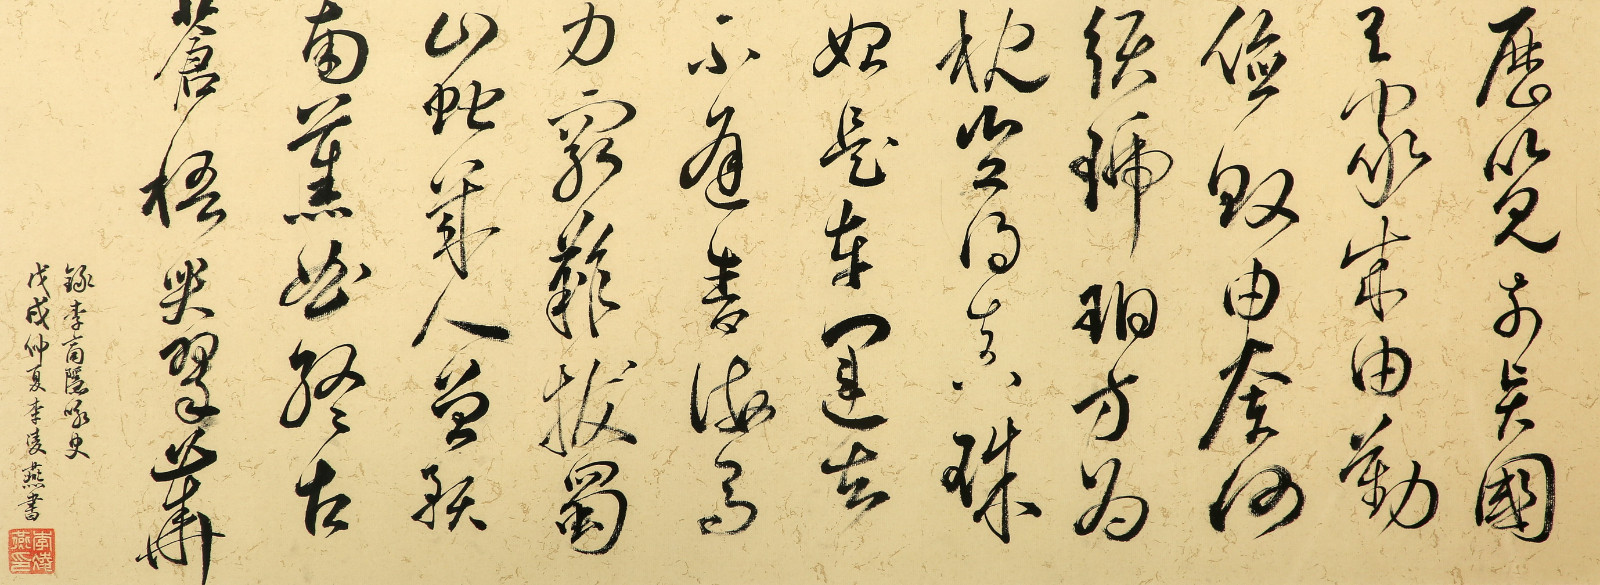 歷覽前賢國
與家成由勤
儉敗由奢何
須琥珀方為
枕豈得真珠
始是車運去
不逢青海馬
力窮難拔蜀
山蛇幾人曾預
南薰曲終古
蒼梧哭翠華
錄李商隱咏史
戊戌仲夏李凌燕書
李凌燕印